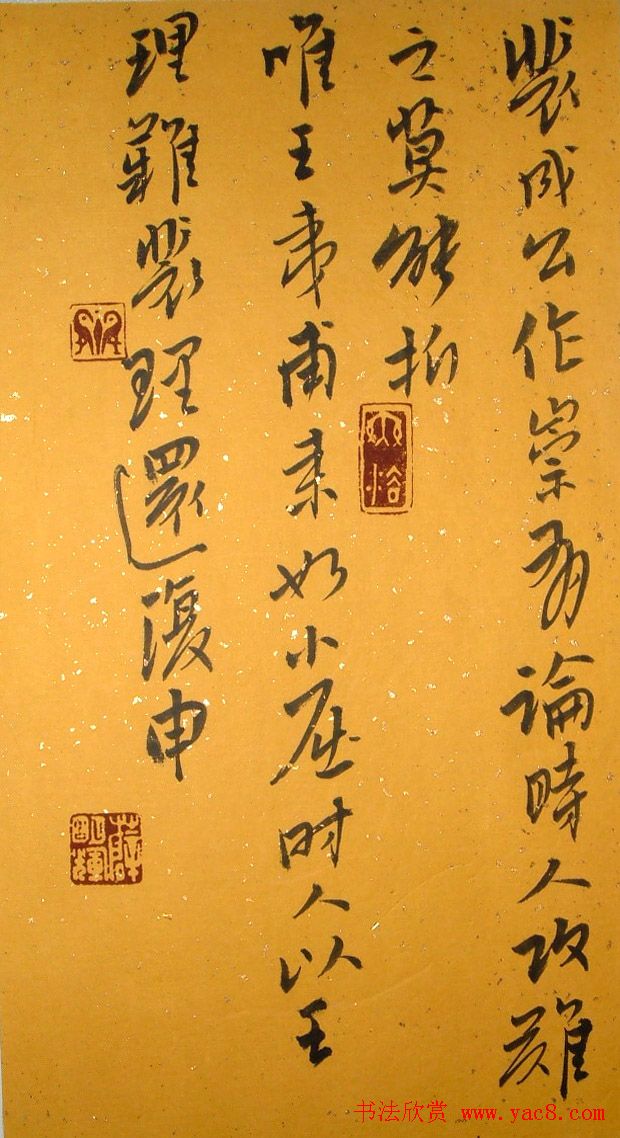 裴成公作崇有論時人攻難
之莫能折
唯王夷甫来如小屈时人以王
理難裴理還復申
书法欣赏 www.yac8.com